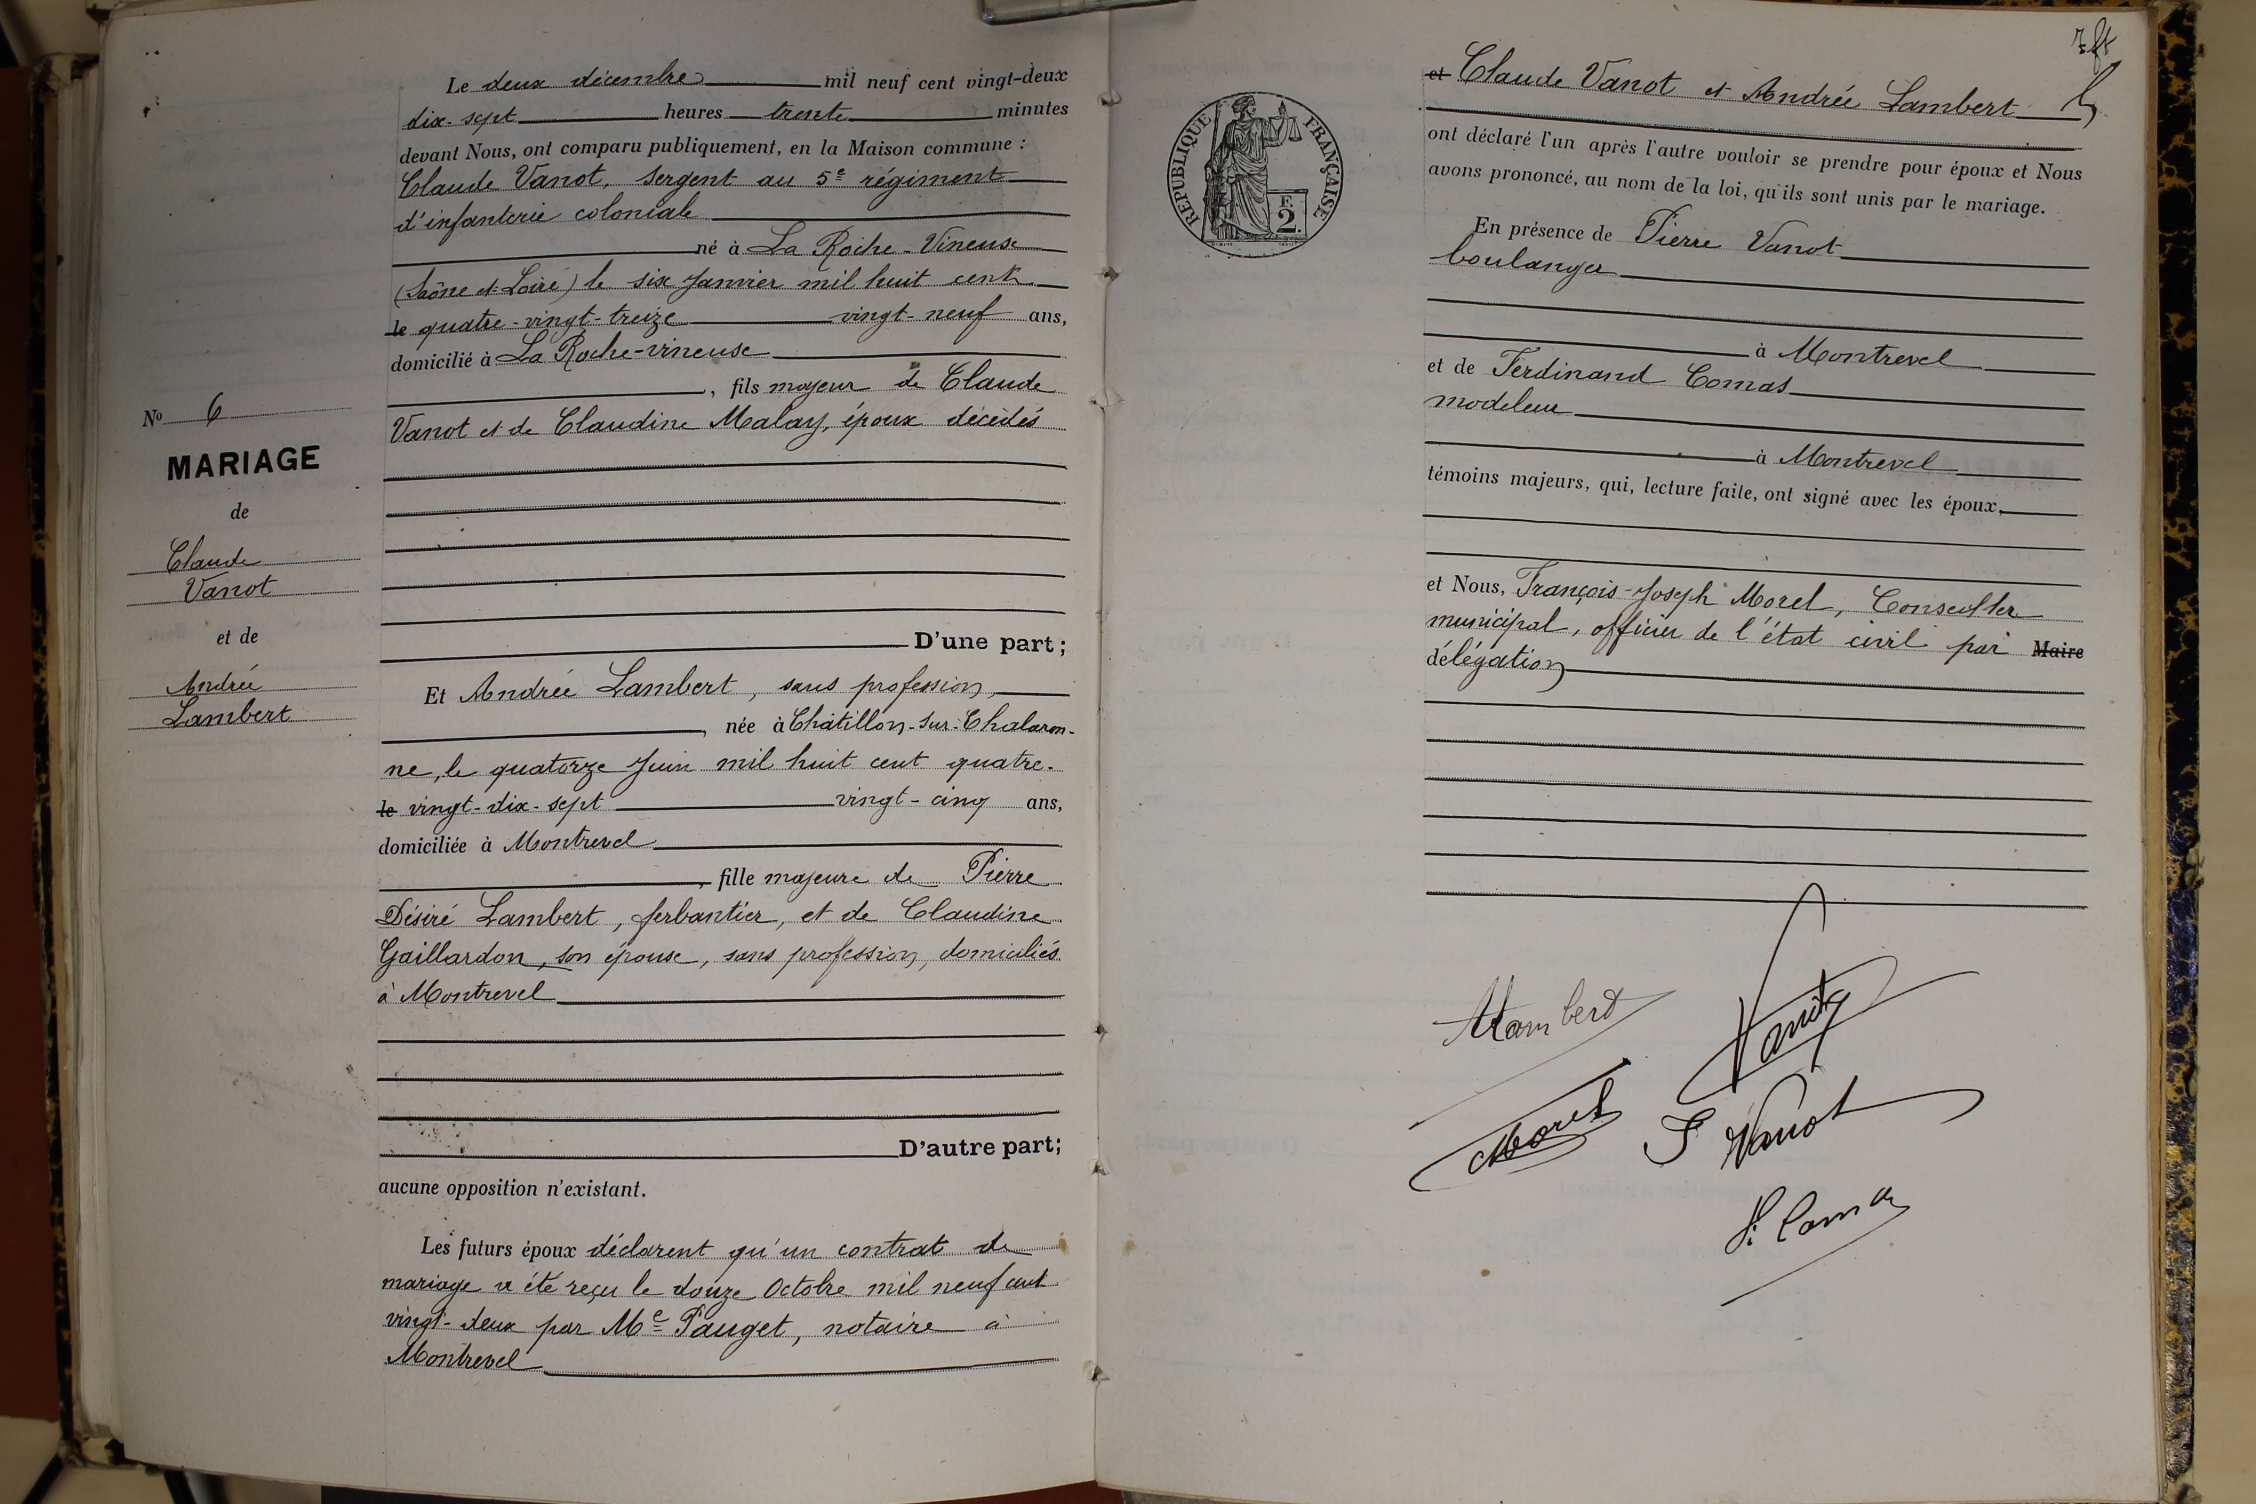 N° 6
MARIAGE
de
Claude
Vanot
et de
Andrée
Lambert
Le deux décembre mil neuf cent vingt-deux
dix-sept heures trente minutes
devant Nous, ont comparu publiquement, en la Maison commune :
Claude Vanot, sergent au 5e régiment
d'infanterie coloniale
né à La Roche-Vineuse
(Saône et Loire) le six Janvier mil huit cent
le quatre-vingt-treize vingt-neuf ans,
domicilié à La Roche-vineuse
, fils majeur de Claude
Vanot et de Claudine Malay, époux décédés
D'une part ;
Et Andrée Lambert, sans profession,
, née à Châtillon-sur-Chalaron-
ne, le quatorze Juin mil huit cent quatre-
le vingt-dix-sept vingt-cinq ans,
domiciliée à Montrevel
, fille majeure de Pierre
Désiré Lambert, ferbantier, et de Claudine
Gaillardon, son épouse, sans profession, domiciliés
à Montrevel
D'autre part ;
aucune opposition n'existant.
Les futurs époux déclarent qu'un contrat de
mariage a été reçu le douze Octobre mil neuf cent
vingt-deux par Me Pauget, notaire à
Montrevel
RÉPUBLIQUE FRANÇAISE
F.
2.
et Claude Vanot et Andrée Lambert
ont déclaré l'un après l'autre vouloir se prendre pour époux et Nous
avons prononcé, au nom de la loi, qu'ils sont unis par le mariage.
En présence de Pierre Vanot
boulanger
à Montrevel
et de Ferdinand Comas
modeleur
à Montrevel
témoins majeurs, qui, lecture faite, ont signé avec les époux,
et Nous, François-Joseph Morel, Conseiller
municipal, officier de l'état civil par Maire
délégation
ALambert
Vanot
Morel
P Vanot
F. Comas